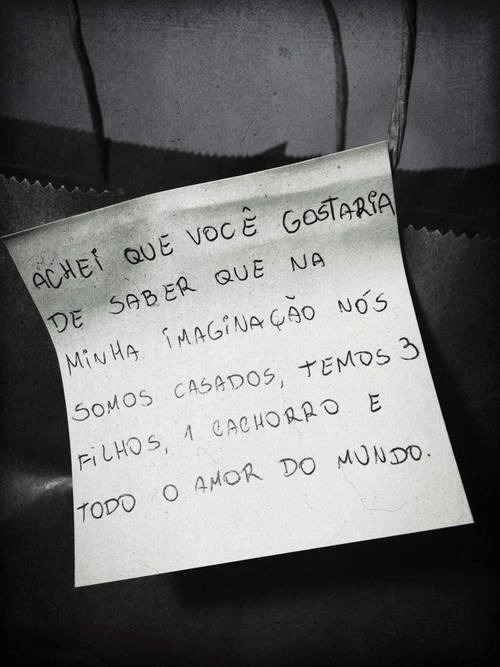 ACHEI QUE VOCÊ GOSTARIA
DE SABER QUE NA
MINHA IMAGINAÇÃO NÓS
SOMOS CASADOS, TEMOS 3
FILHOS, 1 CACHORRO E
TODO O AMOR DO MUNDO.